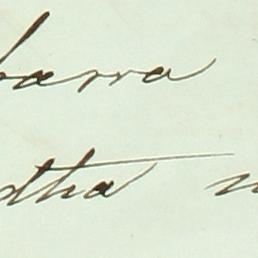 barra
dtha